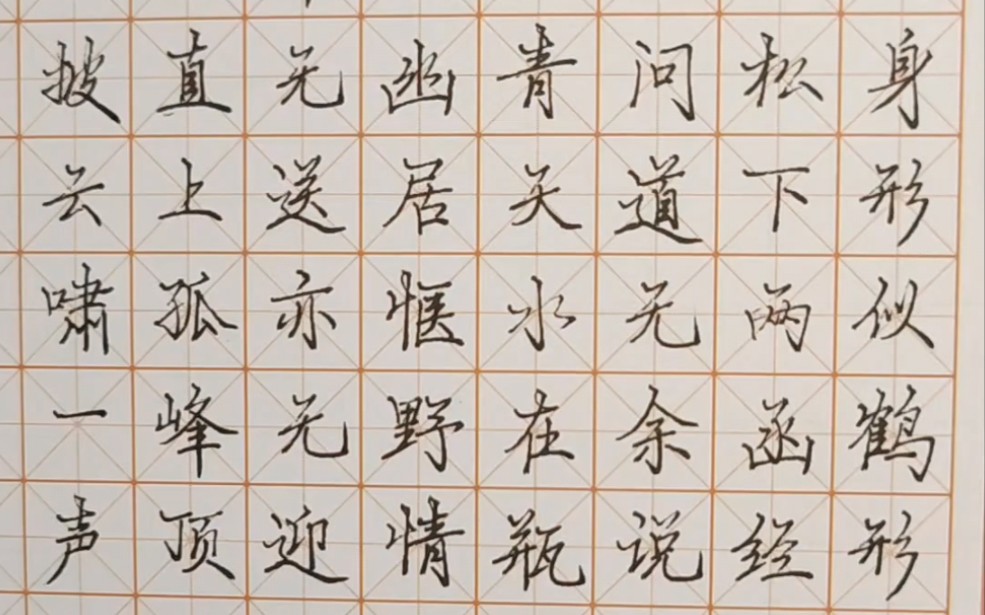 身形似鹤形
松下两函经
问道无余说
青天水在瓶
幽居惬野情
无送亦无迎
直上孤峰顶
披云啸一声